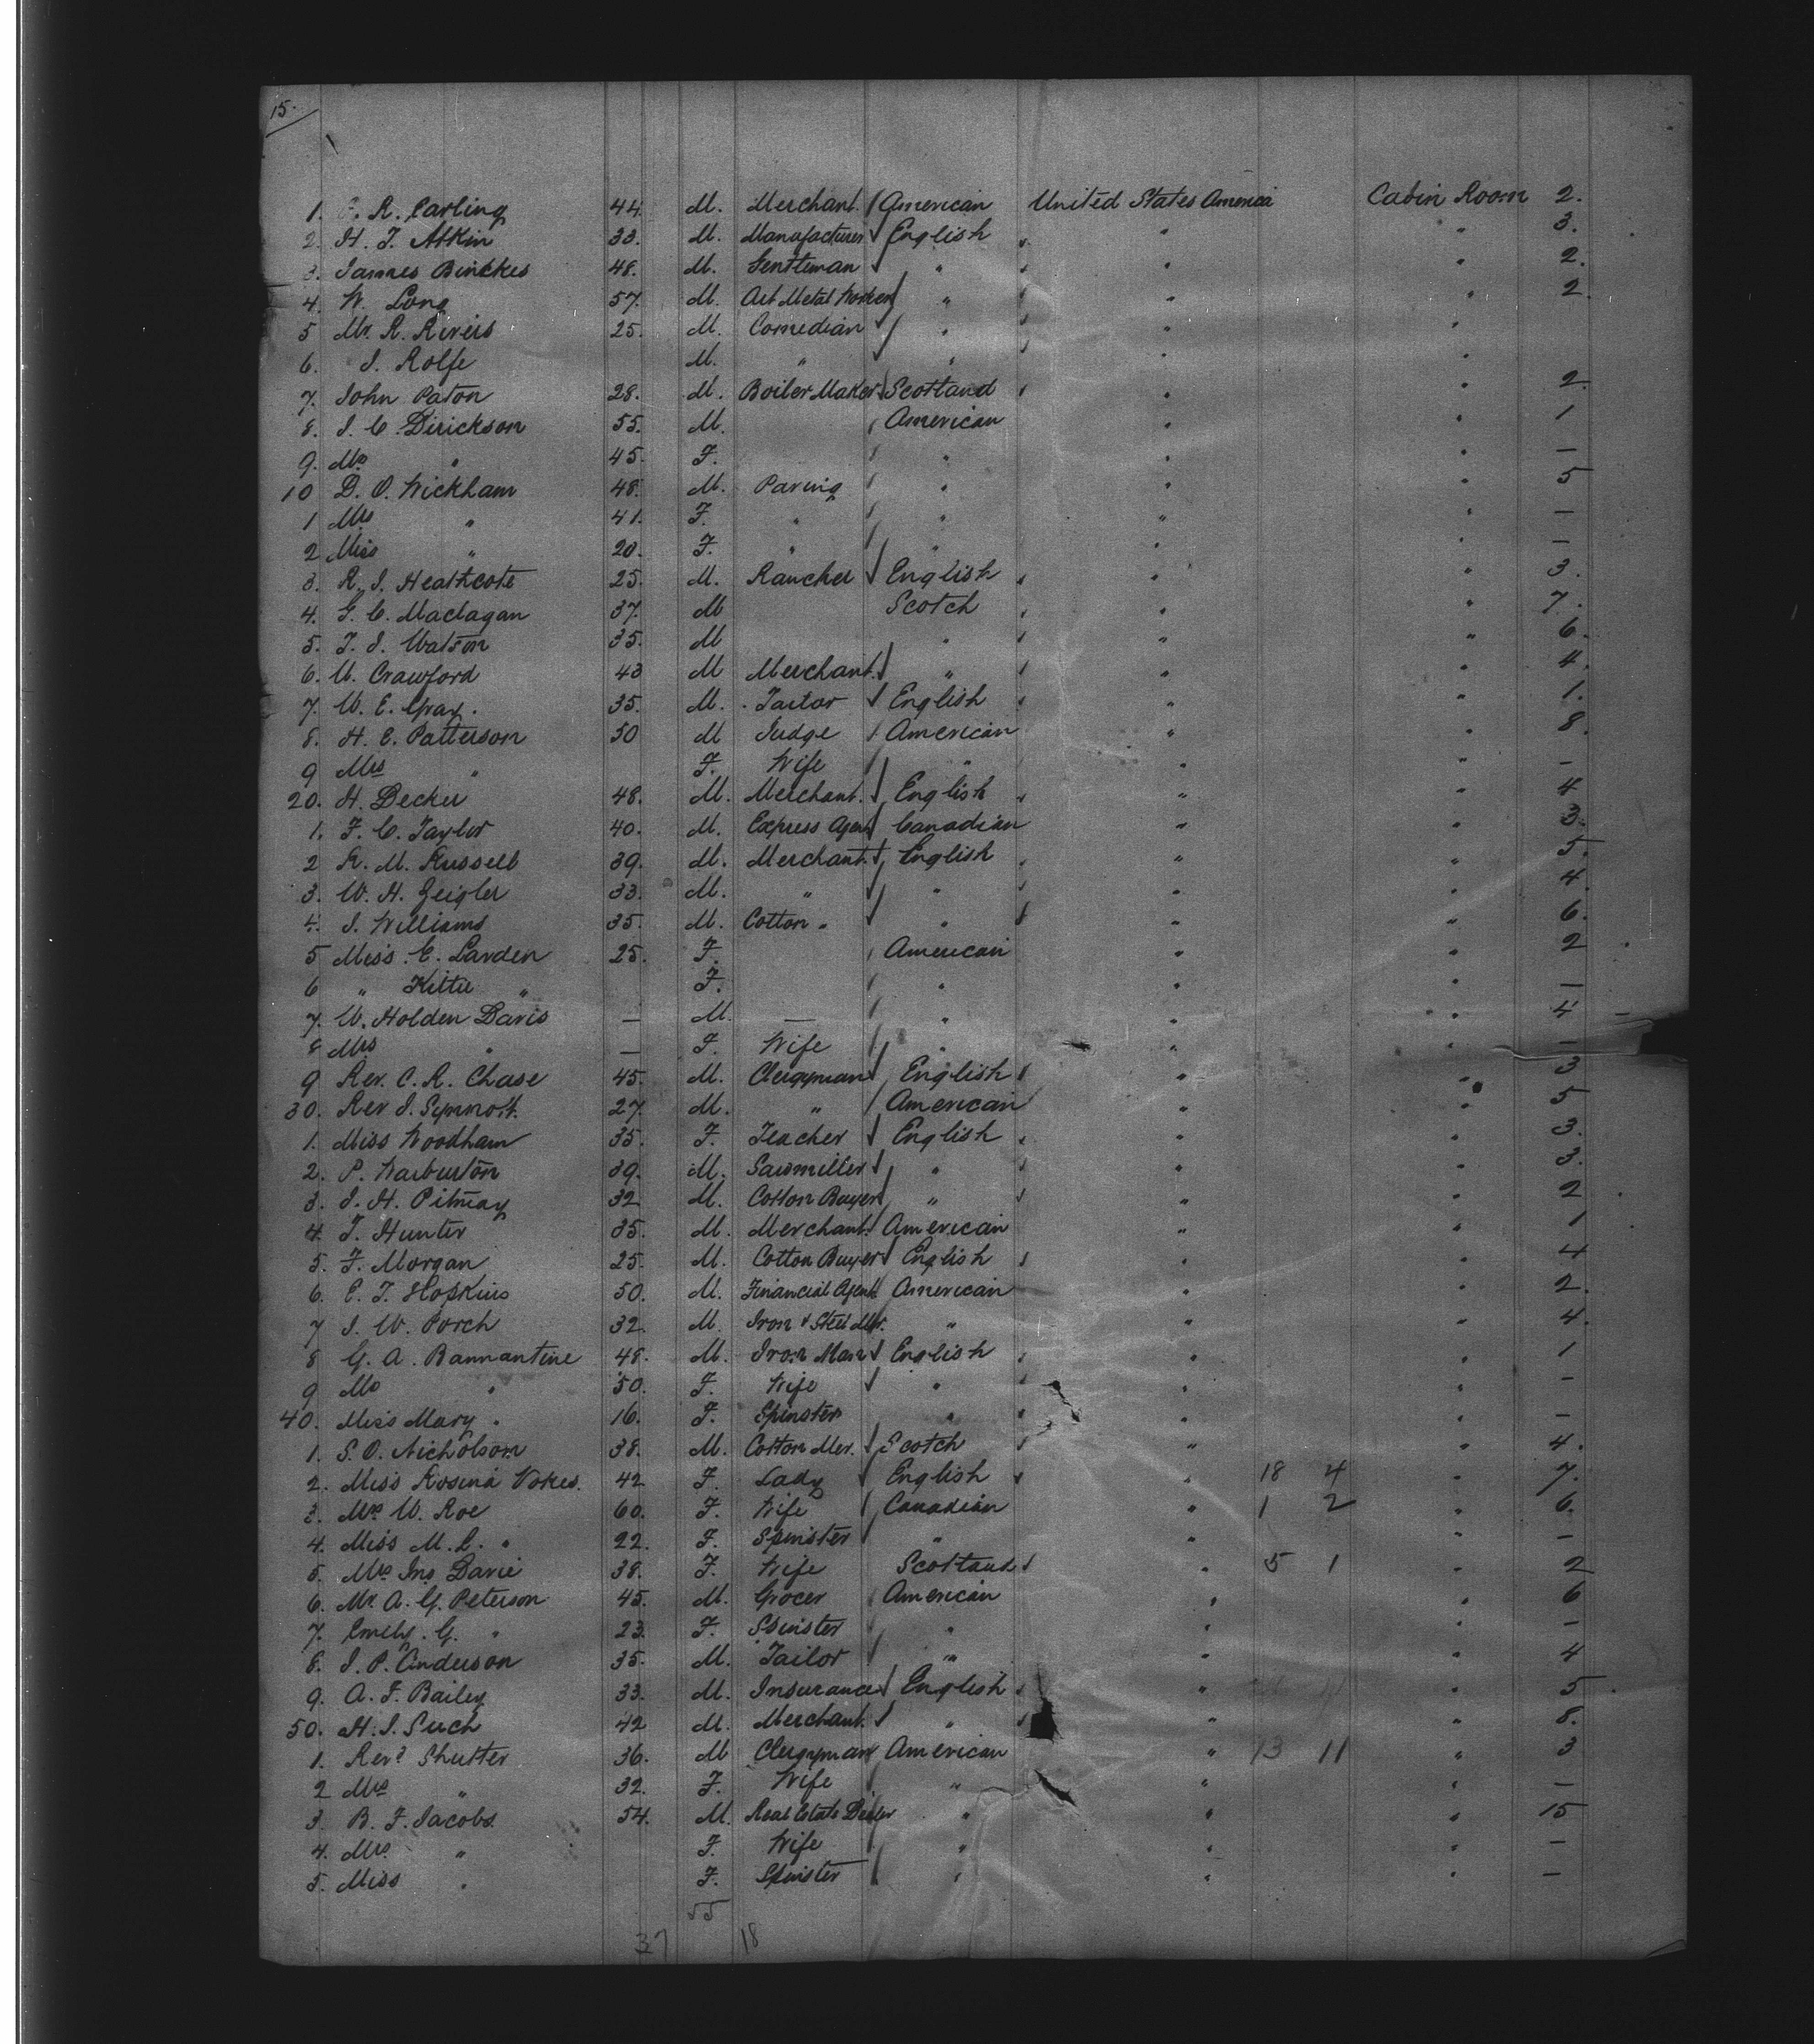 15.
1. R. Carling 44. M. Merchant. / American United States America Cabin Room 2.
2. H. T. Atkin 33. M. Manufacturer √ English " " " 3.
3. James Binckes 48. M. Gentleman √ " " " " 2.
4. W. Long 57. M. Art Metal Worker / " " " " 2.
5 Mr. R. Rivers 25. M. Comedian √ " " " "
6. J. Rolfe M. " √ " " " "
7. John Paton 28. M. Boiler Maker √ Scotland " " " 2.
8. J. C. Dirickson 55. M. / American " " 1
9. Mrs " 45. F. / " " " —
10 D. O. Wickham 48. M. Paving / " " " 5
1 Mrs " 41. F. " / " " " —
2 Miss " 20. F. " / " " " —
3. R. J. Heathcote 25. M. Rancher √ English " " " 3.
4. G. C. Maclagan 37. M Scotch " " " 7.
5. T. J. Watson 35. M " " " " 6.
6. W. Crawford 43 M Merchant. √ " " " " 4.
7. W. E. Gray. 35. M. Tailor √ English " " " 1.
8. H. E. Patterson 50 M Judge / American " " 8.
9 Mrs " F. Wife / " " " —
20. H. Becker 48. M. Merchant. √ English " " " 4
1. F. C. Taylor 40. M. Express Agent / Canadian " " 3.
2 R. M. Russell 39. M. Merchant. √ English " " " 5.
3. W. H. Zeigler 33. M. " √ " " " " 4.
4. J. Williams 35. M. Cotton " √ " " " " 6.
5 Miss. E. Larden 25. F. / American " " 2
6 " Kittie " F. " " " —
7. W. Holden Davis — M. — / " " " 4
8 Mrs " — F. Wife / " " " —
9 Rev. C. R. Chase 45. M. Clergyman √ English " " " 3
30. Rev J. Synnott. 27. M. " / American " " 5
1. Miss Woodham 35. F. Teacher √ English " " " 3.
2. P. Warburton 39. M. Sawmiller √ " " " " 3.
3. J. H. Pitmay 32 M. Cotton Buyer √ " " " " 2
4. T. Hunter 35. M. Merchant. / American " " 1
5. F. Morgan 25. M. Cotton Buyer √ English " " " 4
6. E. T. Hopkins 50. M. Financial Agent. American " " 2.
7 J. W. Porch 32. M. Iron & Steel Mer. " " " 4.
8 G. A. Bannantine 48. M. Iron Man √ English " " " 1
9 Mrs " 50. F. Wife √ " " " " —
40. Miss Mary " 16. F. Spinster " " " " —
1. S. O. Nicholson 38. M. Cotton Mer. √ Scotch " " " 4.
2. Miss Rosina Vokes. 42 F. Lady √ English " " 18 4 " 7.
3. Mrs W. Roe 60. F. Wife / Canadian " 1 2 " 6.
4. Miss M. L. " 22. F. Spinster / " " " —
5. Mrs Jno Davie 38. F. Wife Scotland " " 5 1 " 2
6. Mr. A. G. Peterson 45. M. Grocer / American " " 6
7. Emely. G. " 23. F. Spinster " " " —
8. J. P. Anderson 35. M. Tailor / " " " 4
9. A. F. Bailey 33. M. Insurance √ English " " " 5
50. H. J. Such 42 M. Merchant. √ " " " " 8.
1. Revd Shutter 36. M Clergyman American " 13 11 " 3
2 Mrs " 32. F. Wife / " " " —
3. B. F. Jacobs. 54. M. Real Estate Dealer " " " 15
4. Mrs. " F. Wife / " " " —
5. Miss " F. Spinster / " " " —
55
37 18